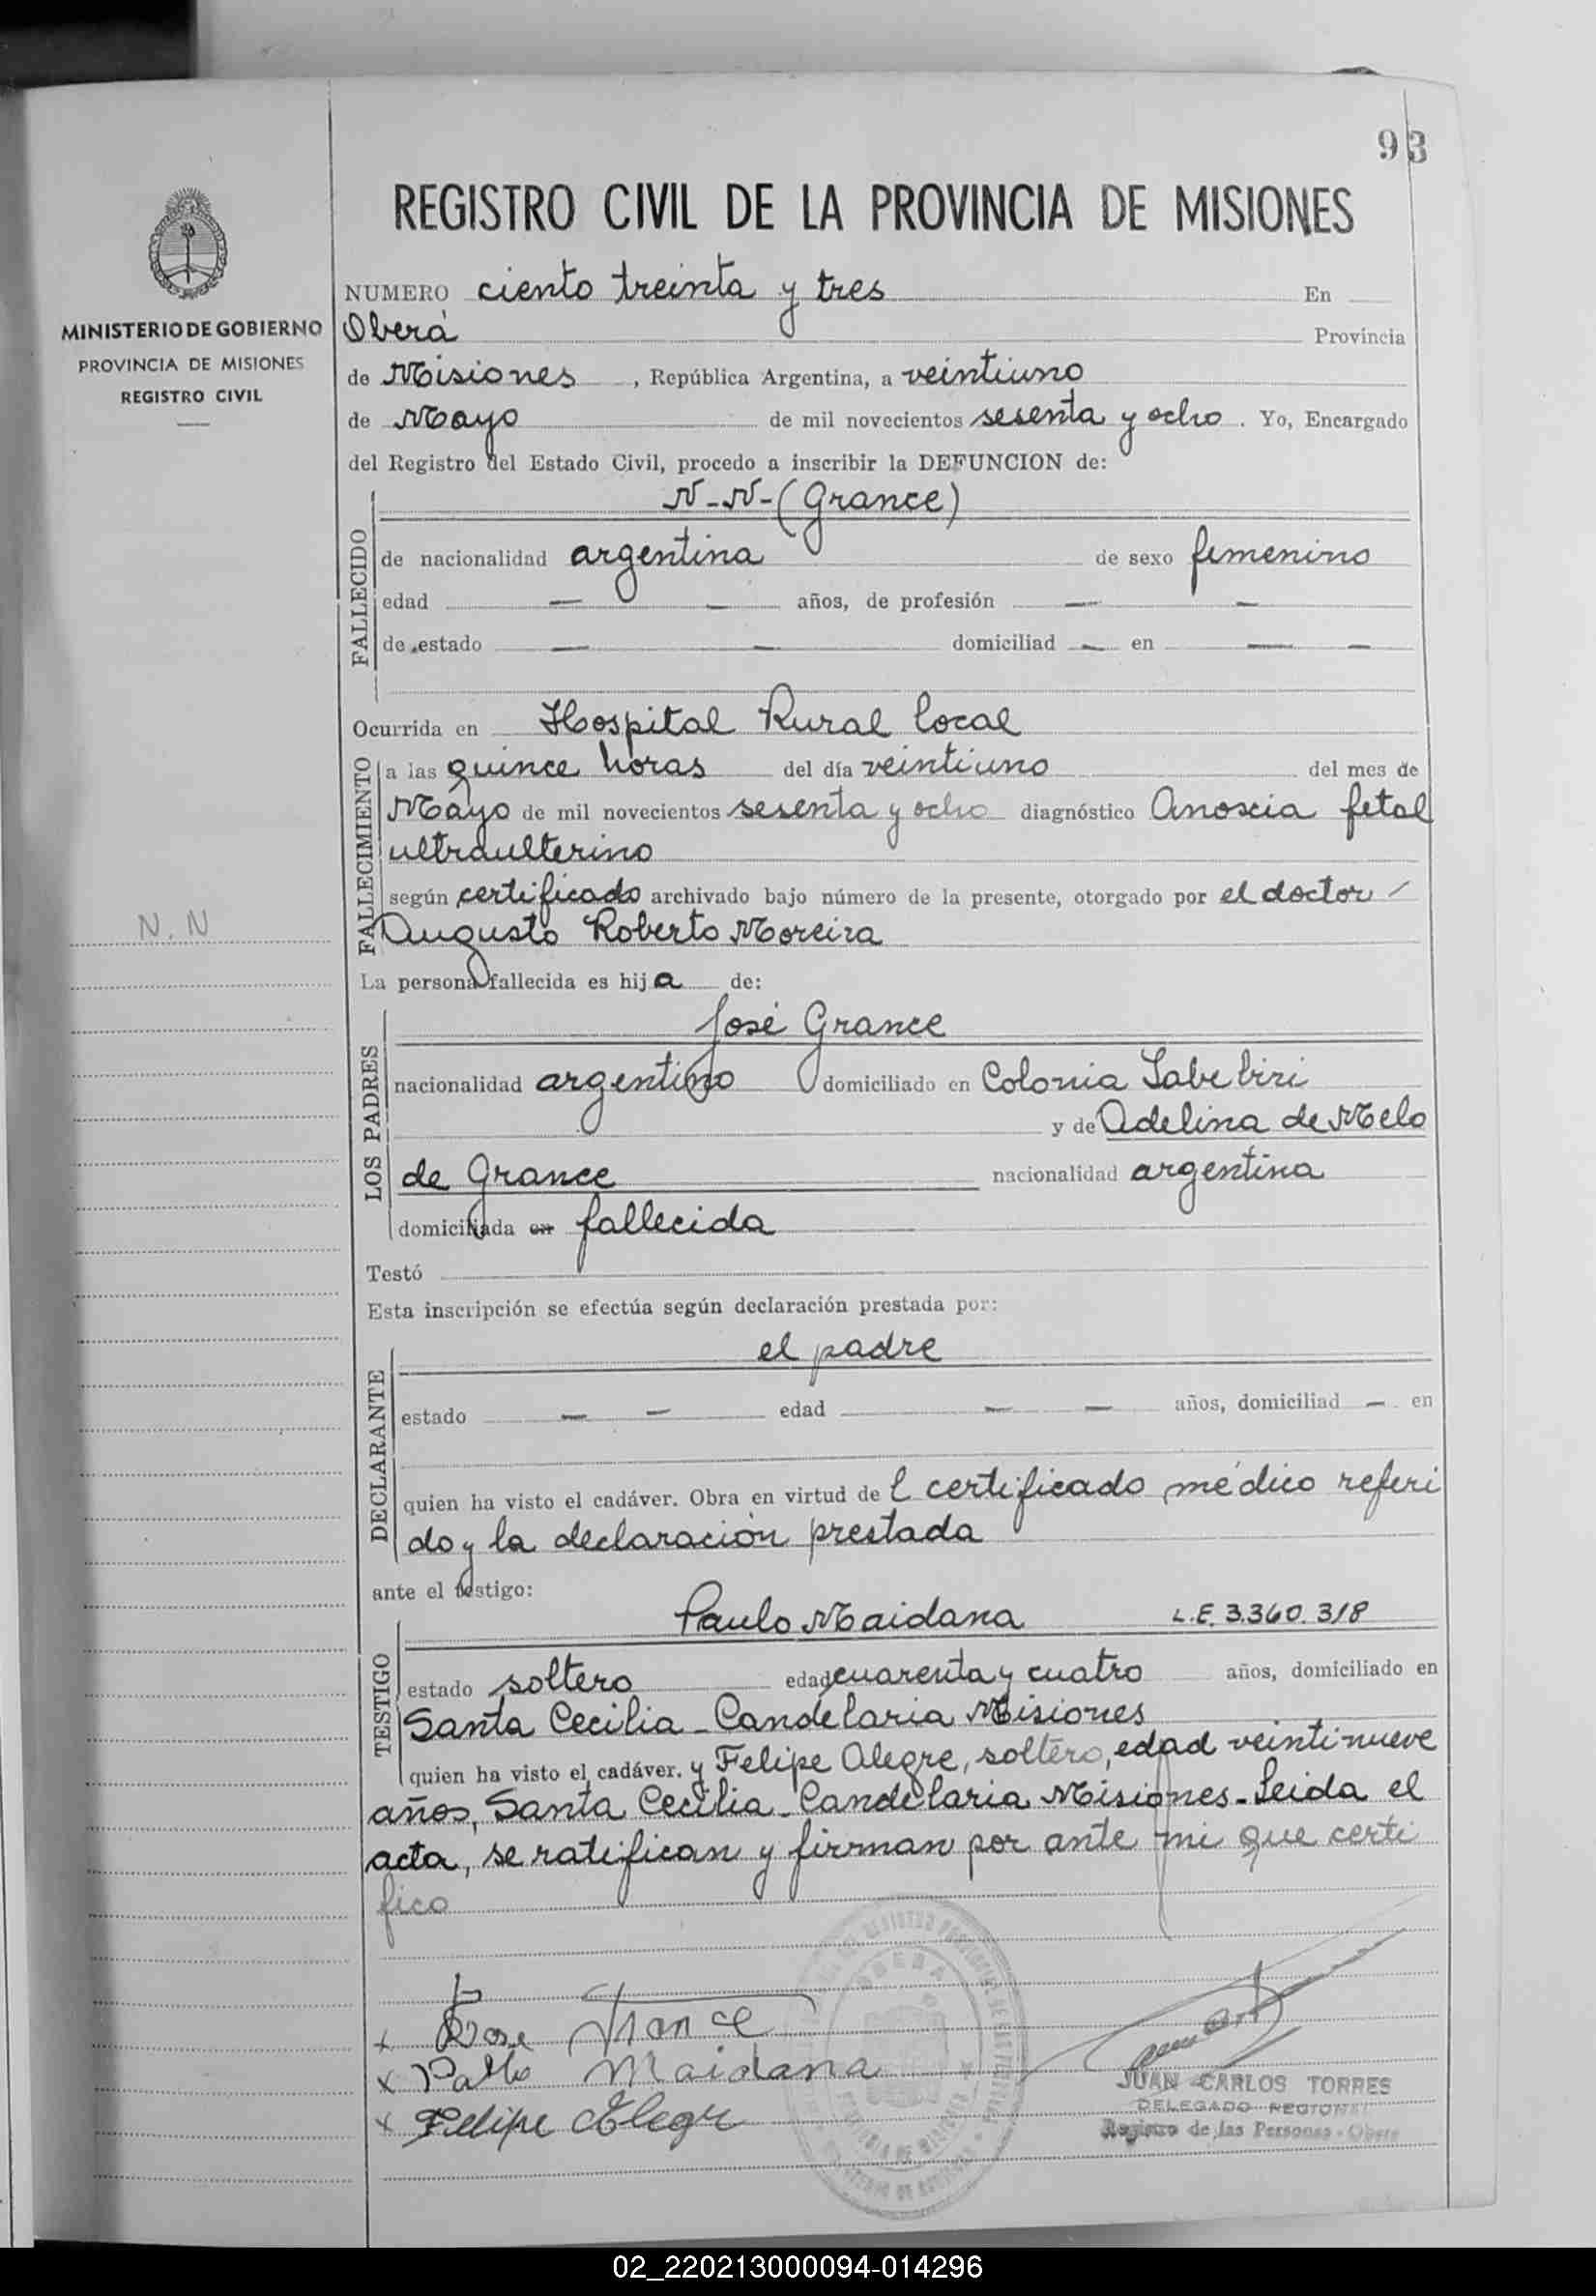 93
REGISTRO CIVIL DE LA PROVINCIA DE MISIONES
MINISTERIO DE GOBIERNO
PROVINCIA DE MISIONES
REGISTRO CIVIL
NUMERO ciento treinta y tres En
Oberá Provincia
de Misiones, República Argentina, a veintiuno
de Mayo de mil novecientos sesenta y ocho. Yo, Encargado
del Registro del Estado Civil, procedo a inscribir la DEFUNCION de:
FALLECIDO
N-N-(Grance)
de nacionalidad argentina de sexo femenino
edad — — años, de profesión — —
de estado — — domiciliad — en — —
Ocurrida en Hospital Rural local
FALLECIMIENTO
a las quince horas del día veintiuno del mes de
Mayo de mil novecientos sesenta y ocho diagnóstico Anoxia fetal
ultraulterino
según certificado archivado bajo número de la presente, otorgado por el doctor /
Augusto Roberto Moreira
N.N
La persona fallecida es hija de:
LOS PADRES
José Grance
nacionalidad argentino domiciliado en Colonia Yabebiri
y de Adelina de Melo
de Grance nacionalidad argentina
domiciliada en fallecida
Testó
Esta inscripción se efectúa según declaración prestada por:
DECLARANTE
el padre
estado — — edad — — años, domiciliad — en
quien ha visto el cadáver. Obra en virtud del certificado médico referi
do y la declaración prestada
ante el testigo:
TESTIGO
Paulo Maidana L.E. 3.360.318
estado soltero edad cuarenta y cuatro años, domiciliado en
Santa Cecilia - Candelaria Misiones
quien ha visto el cadáver. y Felipe Alegre, soltero, edad veintinueve
años, Santa Cecilia - Candelaria Misiones - Leida el
acta, se ratifican y firman por ante mi que certi
fico
x Jose Grance
x Pablo Maidana
x Felipe Alegre
JUAN CARLOS TORRES
DELEGADO REGIONAL
Registro de las Personas - Oberá
02_220213000094-014296